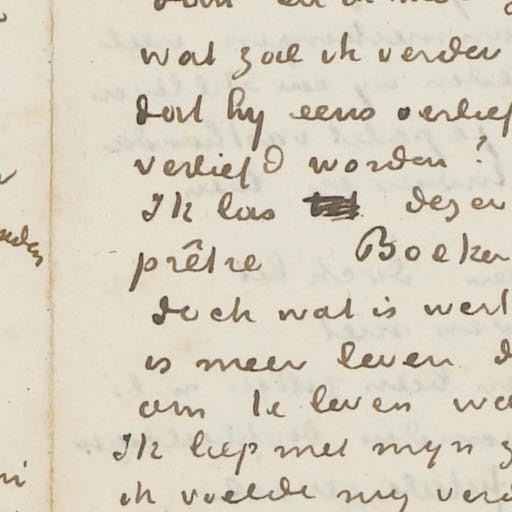 wat zal ik verder
dat hy eens verlief
verliefd worden?
Ik las dezer
prêtre Boeken
doch wat is werk
is meer leven d
om te leven wa
Ik liep met myn z
ik voelde my verd